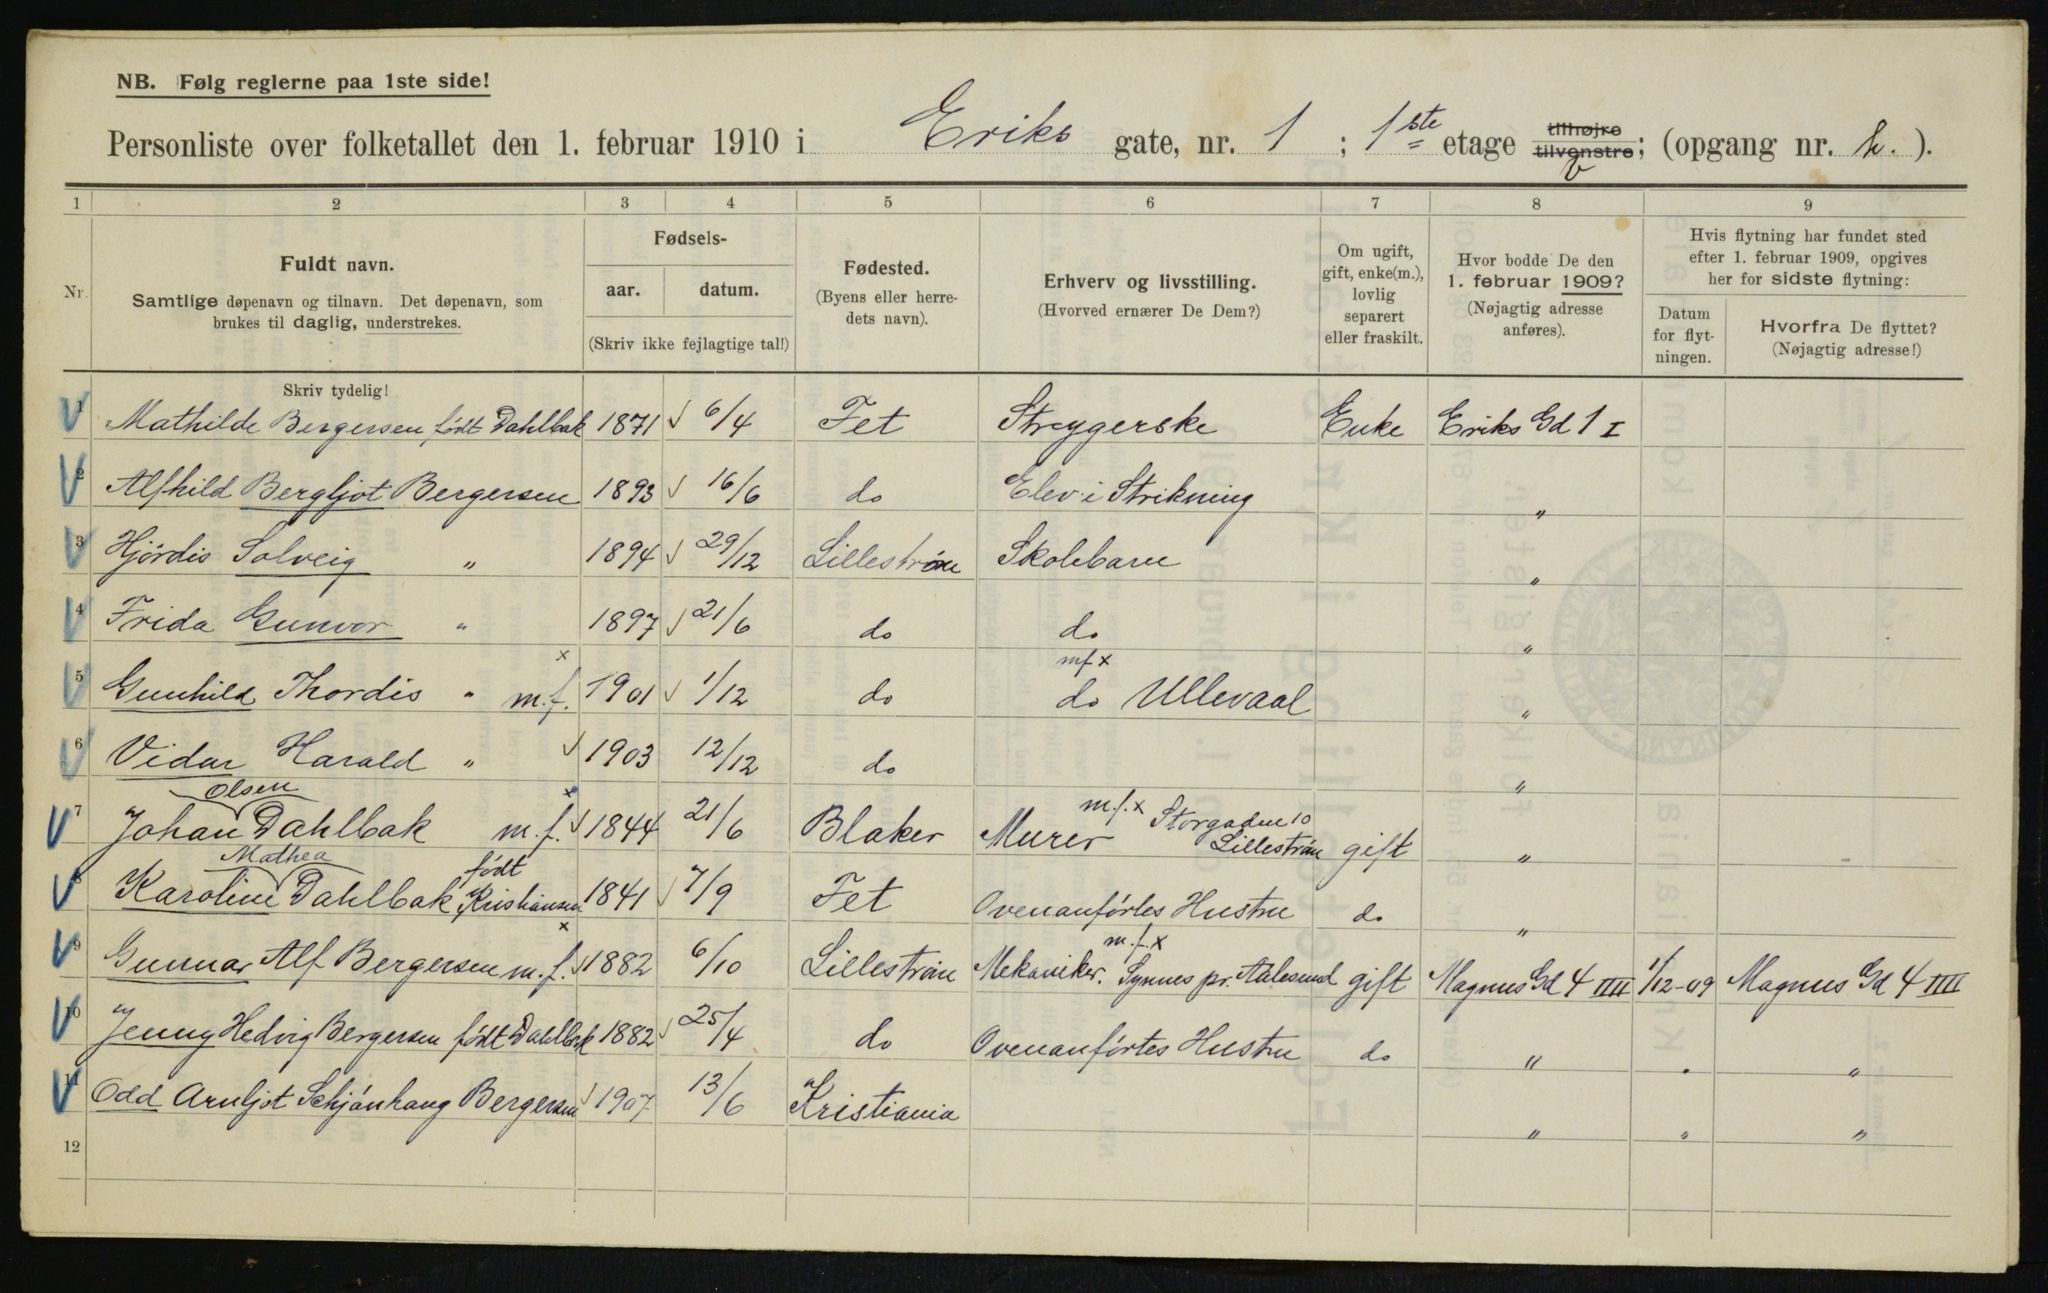 NB. Følg reglerne paa 1ste side!
Personliste over folketallet den 1. februar 1910 i Eriks gate, nr. 1 ; 1ste etage tilhøjre tilvenstre; (opgang nr. h. ).
1 2 3 4 5 6 7 8 9
Nr.
Fuldt navn.
Samtlige døpenavn og tilnavn. Det døpenavn, som
brukes til daglig, understrekes.
Skriv tydelig!
Fødsels-
aar. datum.
(Skriv ikke fejlagtige tal!)
Fødested.
(Byens eller herre-
dets navn).
Erhverv og livsstilling.
(Hvorved ernærer De Dem?)
Om ugift,
gift, enke(m.),
lovlig
separert
eller fraskilt.
Hvor bodde De den
1. februar 1909?
(Nøjagtig adresse
anføres).
Hvis flytning har fundet sted
efter 1. februar 1909, opgives
her for sidste flytning:
Datum
for flyt-
ningen.
Hvorfra De flyttet?
(Nøjagtig adresse!)
1 Mathilde Bergersen født Dahlbak 1871 6/4 Fet Strygerske Enke Eriks Gd 1 I
2 Alfhild Bergljot Bergersen 1893 16/6 do Elev i Strikning "
3 Hjørdis Solveig " 1894 29/12 Lillestrøm Skolebarn "
4 Frida Gunvor " 1897 21/6 do do "
x m.f. x
5 Gunhild Thordis " m.f. 1901 1/12 do do Ullevaal "
6 Vidar Harald " 1903 12/12 do "
Olsen x m.f. x Storgaden 10
7 Johan Dahlbak m.f. 1844 21/6 Blaker Murer Lillestrøm gift "
Mathea født
8 Karoline Dahlbak Kristiansen 1841 7/9 Fet Ovenanførtes Hustru do "
x m.f. x
9 Gunnar Alf Bergersen m.f. 1882 6/10 Lillestrøm Mekaniker. Synnes pr. Aalesund gift Magnus Gd 4 IIII 1/12-09 Magnus Gd 4 IIII
10 Jenny Hedvig Bergersen født Dahlbak 1882 25/4 do Ovenanførtes Hustru do " " "
11 Odd Arnljot Schjønhaug Bergersen 1907 13/6 Kristiania " " "
12